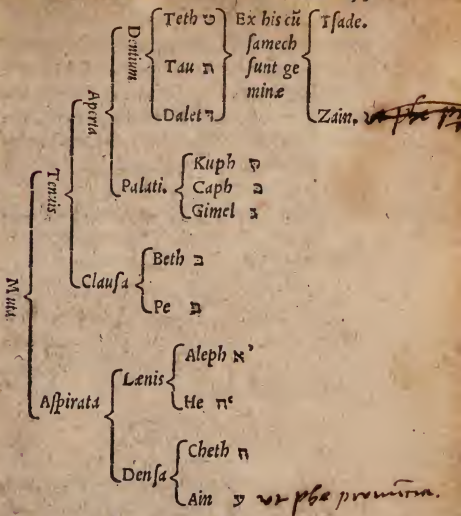 Muta.
Tenuis.
Aperta
Dentium
Teth ט
Tau ת
Dalet ד
Ex his cũ
ſamech
ſunt ge
minæ
Tſade.
Zain.
Palati.
Kuph ק
Caph כ
Gimel ג
Clauſa
Beth ב
Pe פ
Aſpirata
Lænis
Aleph א
He ה
Denſa
Cheth ח
Ain ע